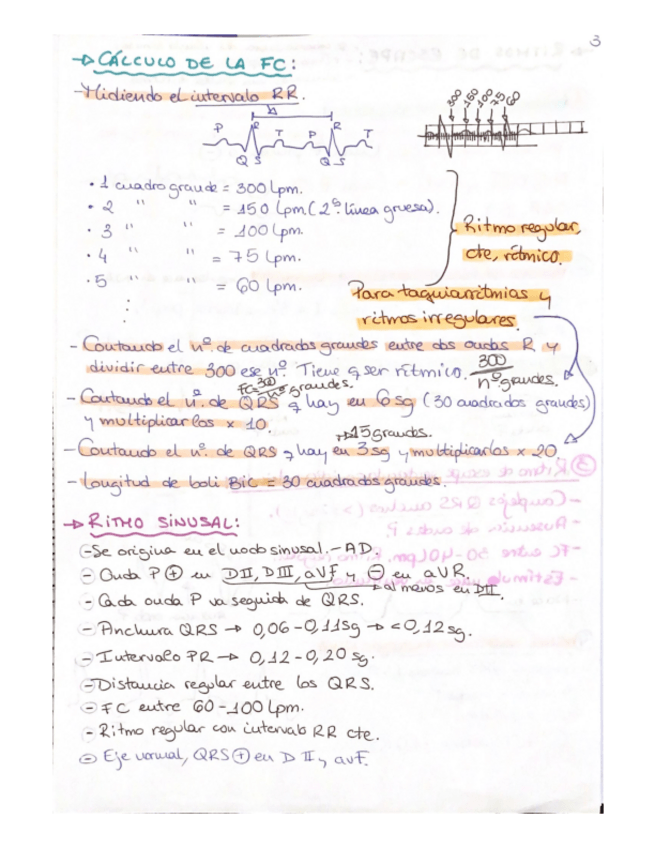 3
→ CÁLCULO DE LA FC:
- Midiendo el intervalo RR.
300 150 100 75 60
P R T P R T
Q S Q S
· 1 cuadro grande = 300 lpm.
· 2 " " = 150 lpm (2ª línea gruesa).
· 3 " " = 100 lpm.
· 4 " " = 75 lpm.
· 5 " " = 60 lpm.
Ritmo regular,
cte, rítmico.
Para taquiarritmias y
ritmos irregulares.
- Contando el nº. de cuadrados grandes entre dos ondas R y
dividir entre 300 ese nº. Tiene q ser rítmico. 300
nº grandes.
FC = 300
nº grandes.
- Contando el nº. de QRS q hay en 6 sg (30 cuadrados grandes)
y multiplicarlos x 10.
→ 15 grandes.
- Contando el nº. de QRS q hay en 3 sg y multiplicarlos x 20
- Longitud de boli BIC = 30 cuadrados grandes.
→ RITMO SINUSAL:
- Se origina en el nodo sinusal. - AD.
- Onda P ⊕ en DII, DIII, aVF y ⊖ en aVR.
→ al menos en DII.
- Cada onda P va seguida de QRS.
- Anchura QRS → 0,06 - 0,11 sg → < 0,12 sg.
- Intervalo PR → 0,12 - 0,20 sg.
- Distancia regular entre los QRS.
- FC entre 60 - 100 lpm.
- Ritmo regular con intervalo RR cte.
- Eje normal, QRS ⊕ en D II y avF.